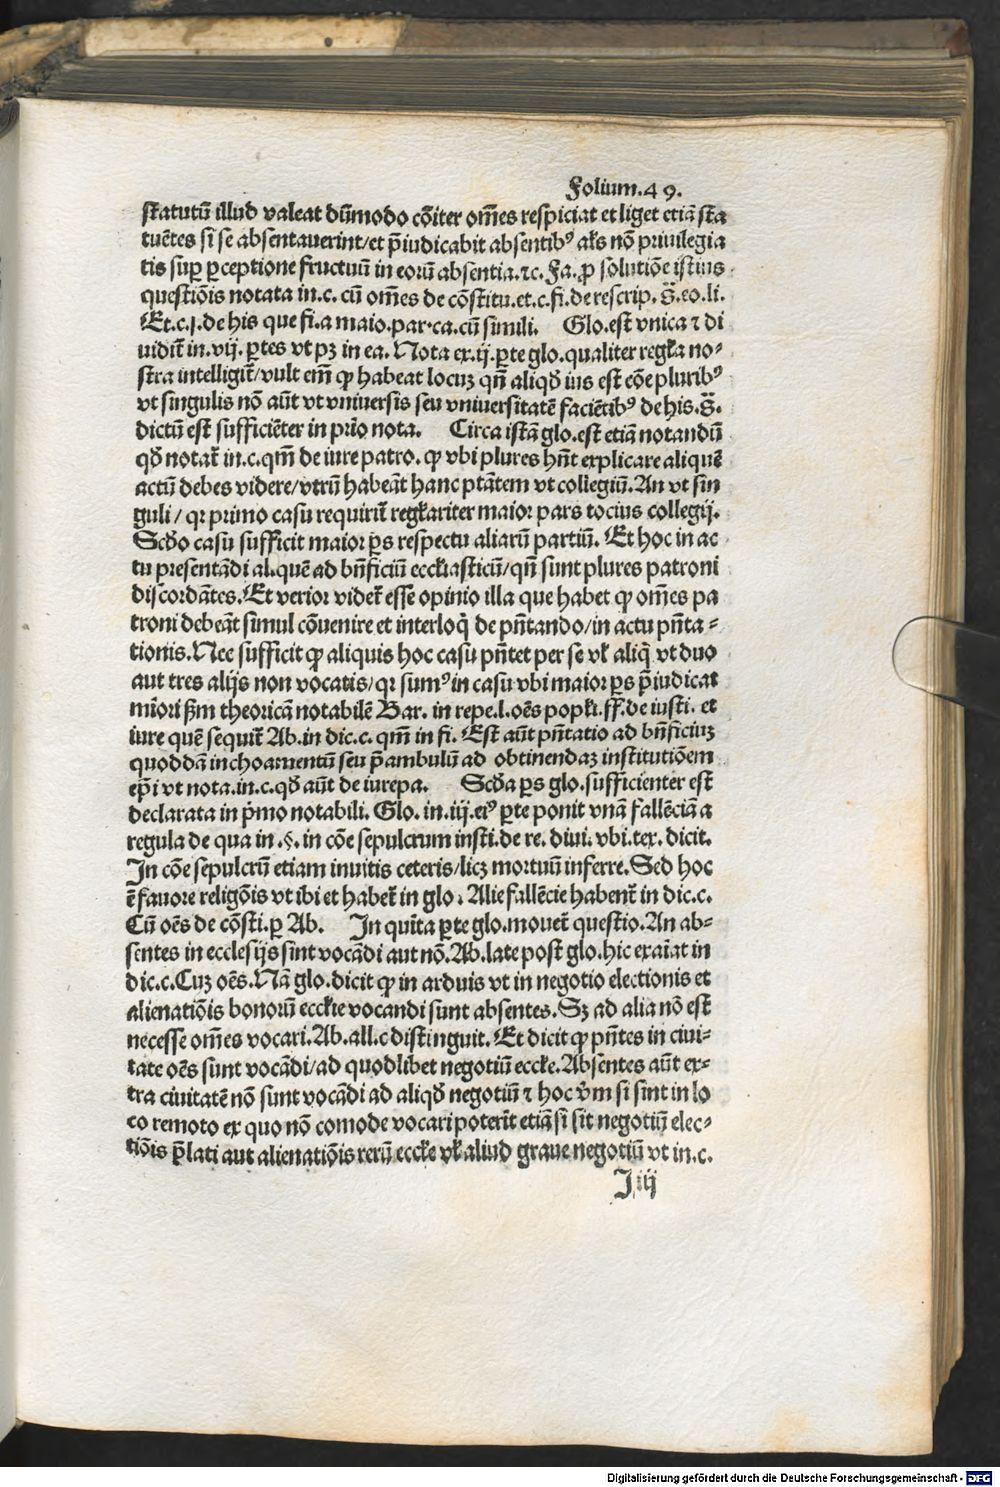 Folium.49.
statutū illud valeat dūmodo cōiter om̄es respiciat et liget etiā sta
tuētes si se absentauerint/et p̄iudicabit absentibꝰ al̄s nō priuilegia
tis suꝑ ꝑceptione fructuū in eorū absentia.⁊c. Fa.ꝓ solutiōe istius
questiōis notata in.c. cū om̄es de cōstitu.et.c.fi.de rescrip. S̄.eo.li.
Et.c.j.de his que fi.a maio.par.ca.cū simili. Glo.est vnica ⁊ di
uidit̄ in.vij. ꝑtes vt pꝫ in ea. Nota ex.ij.ꝑte glo.qualiter regl̄a no-
stra intelligit̄/vult em̄ ꝙ habeat locuꝫ qn̄ aliqđ ius est cōe pluribꝰ
vt singulis nō aūt vt vniuersis seu vniuersitatē faciētibꝰ de his.S̄.
dictū est sufficiēter in prīo nota. Circa istā glo.est etiā notandū
qđ notat̄ in.c.qm̄ de iure patro. ꝙ vbi plures hn̄t explicare aliquē
actū debes videre/vtrū habeāt hanc ptātem vt collegiū. An vt sin
guli / qꝛ primo casu requirit̄ regl̄ariter maior pars tocius collegij.
Scđo casu sufficit maior ꝑs respectu aliarū partiū. Et hoc in ac
tu presentādi al.quē ad bn̄ficiū eccl̄iasticū/qn̄ sunt plures patroni
discordātes.Et verior videt̄ esse opinio illa que habet ꝙ om̄es pa
troni debeāt simul cōuenire et interloq̄ de pn̄tando/in actu pn̄ta-
tionis.Nec sufficit ꝙ aliquis hoc casu pn̄tet per se vl̄ aliq̄ vt duo
aut tres alijs non vocatis/qꝛ sumꝰ in casu vbi maior ꝑs p̄iudicat
mīori ẜm theoricā notabilē Bar. in repe.l.oēs popl̄i.ff.de iusti. et
iure quē sequit̄ Ab.in dic.c. qm̄ in fi. Est aūt pn̄tatio ad bn̄ficiuꝫ
quoddā inchoamentū seu p̄ambulū ad obtinendaꝫ institutiōem
ep̄i vt nota.in.c.qđ aūt de iurepa. Scđa ꝑs glo.sufficienter est
declarata in p̄mo notabili. Glo. in.iij.eiꝰ ꝑte ponit vnā fallēciā a
regula de qua in .§. in cōe sepulcrum insti.de re. diui. vbi.tex. dicit.
In cōe sepulcrū etiam inuitis ceteris/licꝫ mortuū inferre.Sed hoc
ē fauore religōis vt ibi et habet̄ in glo. Alie fallēcie habent̄ in dic.c.
Cū oēs de cōsti.ꝑ Ab. In quīta ꝑte glo.mouet̄ questio.An ab-
sentes in ecclesijs sint vocādi aut nō.Ab.late post glo.hic exaīat in
dic.c.Cuꝫ oēs.Nā glo.dicit ꝙ in arduis vt in negotio electionis et
alienatiōis bonorū eccl̄ie vocandi sunt absentes.Sꝫ ad alia nō est
necesse om̄es vocari.Ab.all.c distinguit. Et dicit ꝙ pn̄tes in ciui-
tate oēs sunt vocādi/ad quodlibet negotiū eccl̄e.Absentes aūt ex-
tra ciuitatē nō sunt vocādi ad aliqđ negotiū ⁊ hoc v̄m si sint in lo
co remoto ex quo nō comode vocari poterīt etiā si sit negotiū elec-
tiōis p̄lati aut alienatiōis rerū eccl̄e vl̄ aliud graue negotiū vt in.c.
J iij
Digitalisierung gefördert durch die Deutsche Forschungsgemeinschaft - DFG